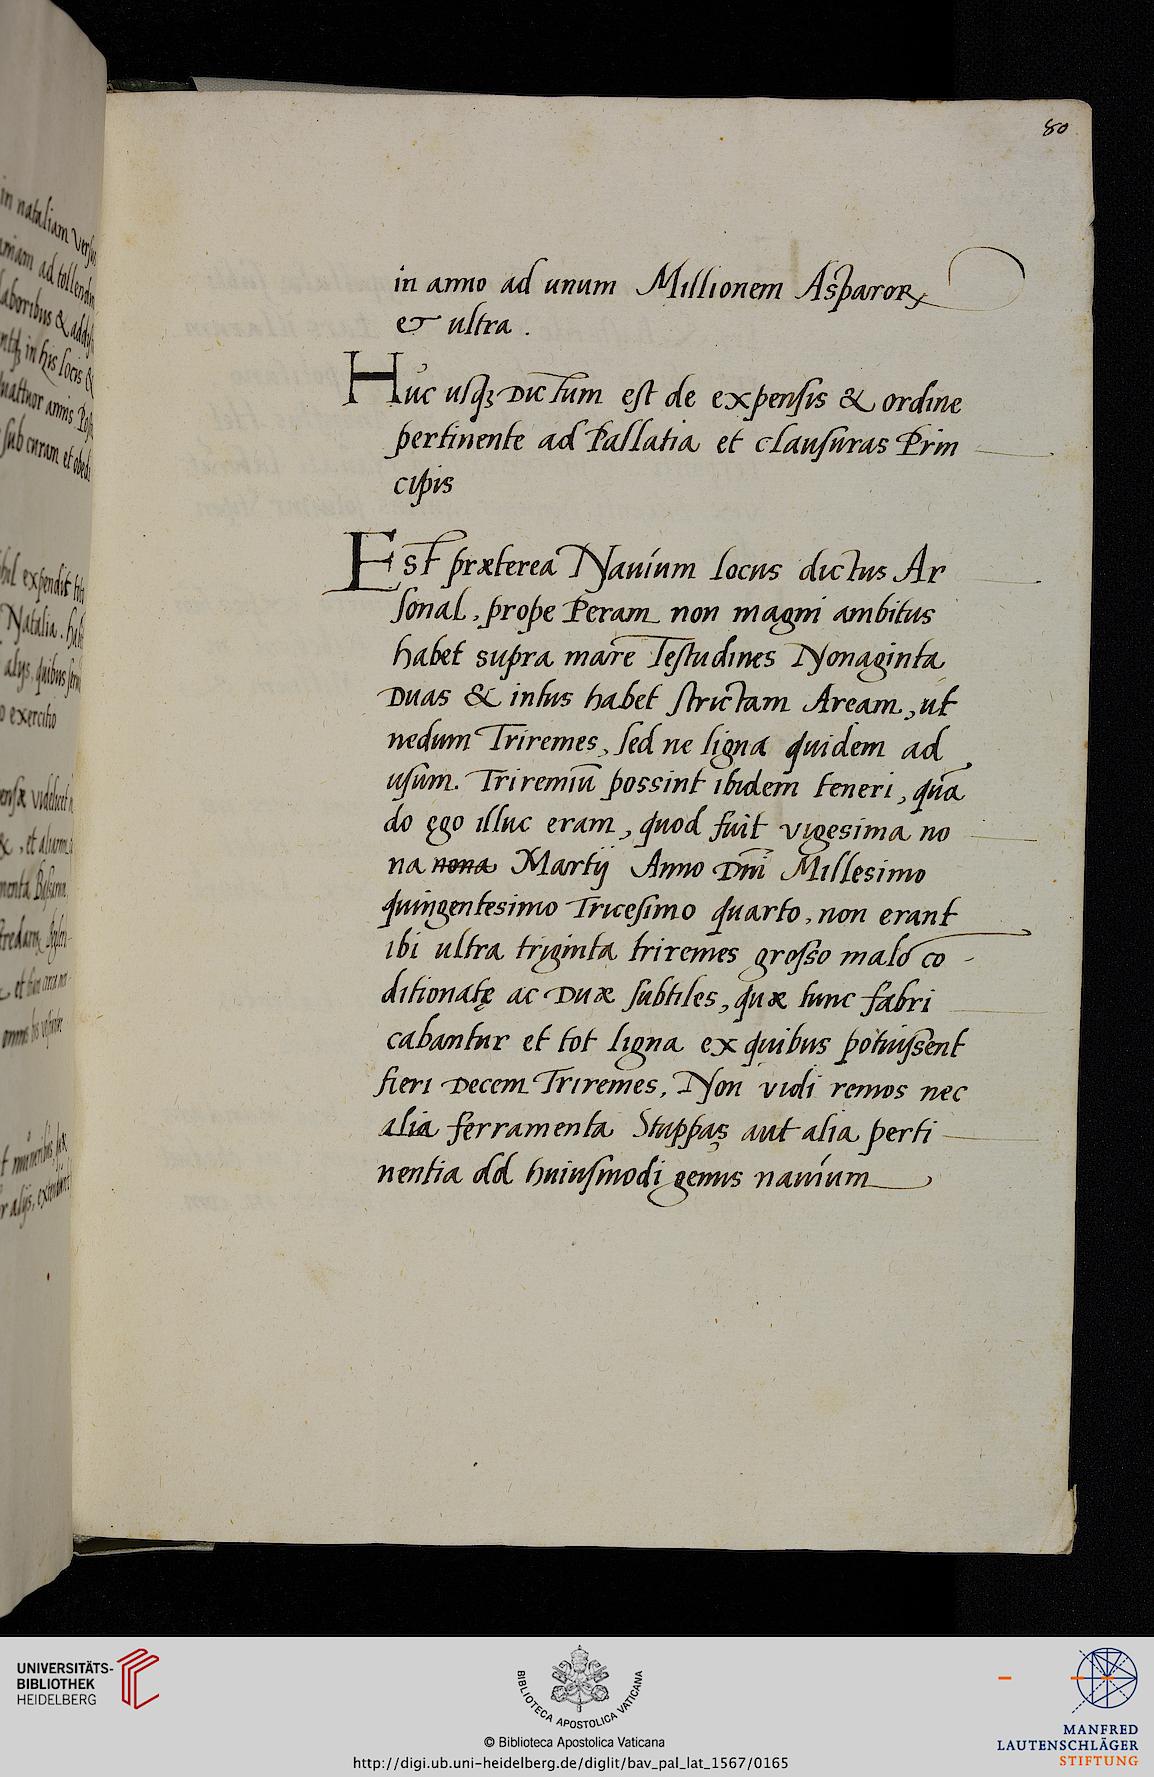 80
in anno ad unum Millionem Asparorꝝ
& ultra .
Huc usqꝫ Dictum est de expensis & ordine
pertinente ad Pallatia et clausuras Prin
cipis
Est præterea Nauium locus dictus Ar
sonal, prope Peram non magni ambitus
habet supra mare Testudines Nonaginta
Duas & intus habet strictam Aream, ut
nedum Triremes, sed ne ligna quidem ad
usum. Triremiū possint ibidem teneri, quā
do ego illuc eram, quod fuit vigesima no
na nona Martij Anno Dn̄i Millesimo
quingentesimo Tricesimo quarto, non erant
ibi ultra triginta triremes grosso malo cō
ditionatę ac Duæ subtiles, quæ tunc fabri
cabantur et tot ligna ex quibus potuissent
fieri Decem Triremes, Non vidi remos nec
alia ferramenta Stuppas aut alia perti
nentia ad huiusmodi genus nauium
in nataliam versus
ad tollendū
laboribus &
in his locis &
quattuor annis
sub curam et obed
expendit
Natalia. hab
alijs, quibus
exercitio
videlicet
&, et aliarum
omnes
alijs,
UNIVERSITÄTS-
BIBLIOTHEK
HEIDELBERG
BIBLIOTECA APOSTOLICA VATICANA
© Biblioteca Apostolica Vaticana
http://digi.ub.uni-heidelberg.de/diglit/bav_pal_lat_1567/0165
MANFRED
LAUTENSCHLÄGER
STIFTUNG